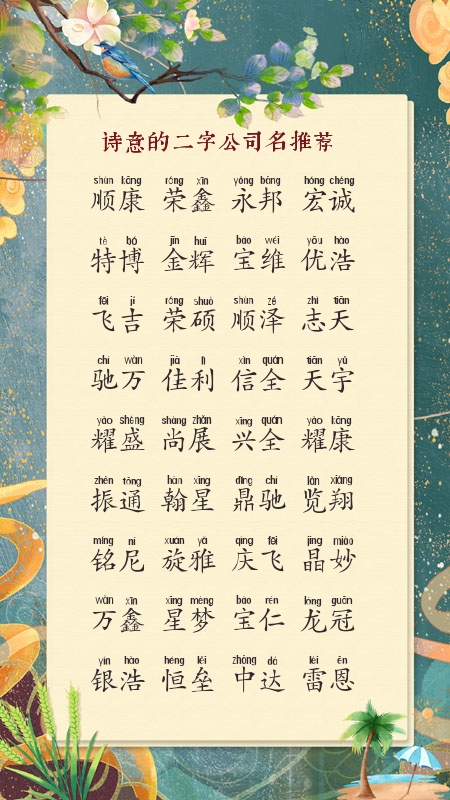 诗意的二字公司名推荐
shùn kāng róng xīn yǒng bāng hóng chéng
顺康 荣鑫 永邦 宏诚
tè bó jīn huī bǎo wéi yōu hào
特博 金辉 宝维 优浩
fēi jí róng shuò shùn zé zhì tiān
飞吉 荣硕 顺泽 志天
chí wàn jiā lì xìn quán tiān yǔ
驰万 佳利 信全 天宇
yào shèng shàng zhǎn xīng quán yào kāng
耀盛 尚展 兴全 耀康
zhèn tōng hàn xīng dǐng chí lǎn xiáng
振通 翰星 鼎驰 览翔
míng ní xuán yǎ qìng fēi jīng miào
铭尼 旋雅 庆飞 晶妙
wàn xīn xīng mèng bǎo rén lóng guān
万鑫 星梦 宝仁 龙冠
yín hào héng lěi zhōng dá léi ēn
银浩 恒垒 中达 雷恩